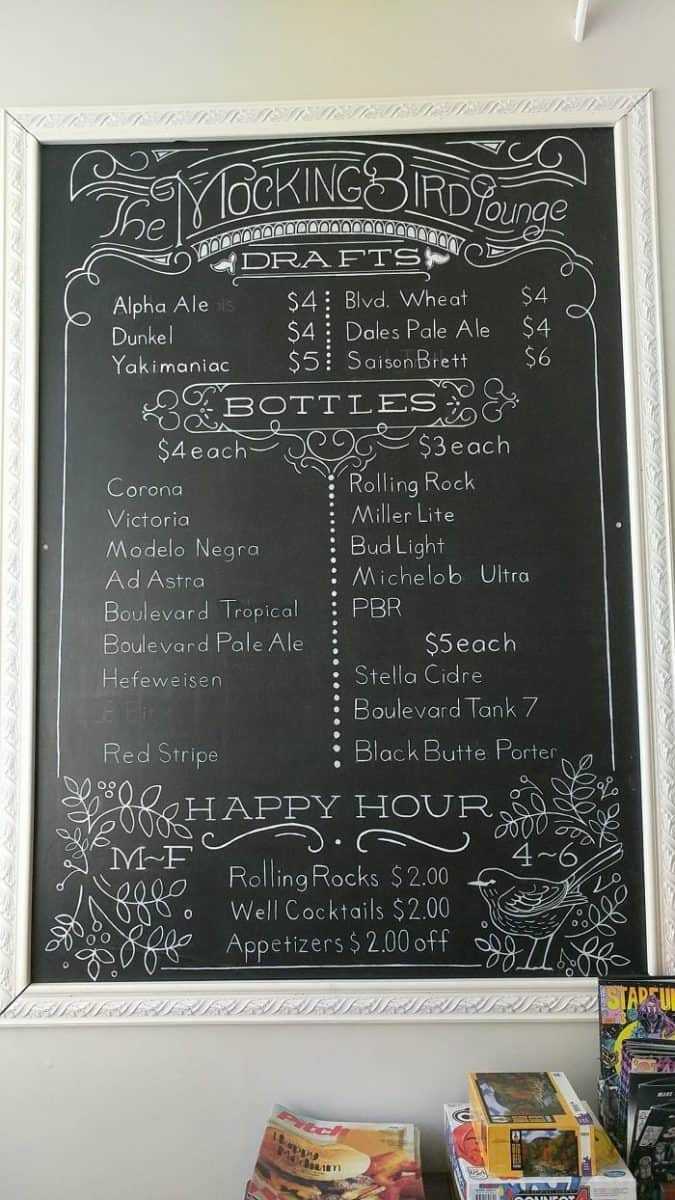 The MockingBird Lounge
DRAFTS
Alpha Ale $4
Dunkel $4
Yakimaniac $5
Blvd. Wheat $4
Dales Pale Ale $4
Saison Brett $6
BOTTLES
$4 each
Corona
Victoria
Modelo Negra
Ad Astra
Boulevard Tropical
Boulevard Pale Ale
Hefeweisen
Red Stripe
$3 each
Rolling Rock
Miller Lite
Bud Light
Michelob Ultra
PBR
$5 each
Stella Cidre
Boulevard Tank 7
Black Butte Porter
HAPPY HOUR
M~F
4~6
Rolling Rocks $2.00
Well Cocktails $2.00
Appetizers $2.00 off
Pitch
CONNECT 4